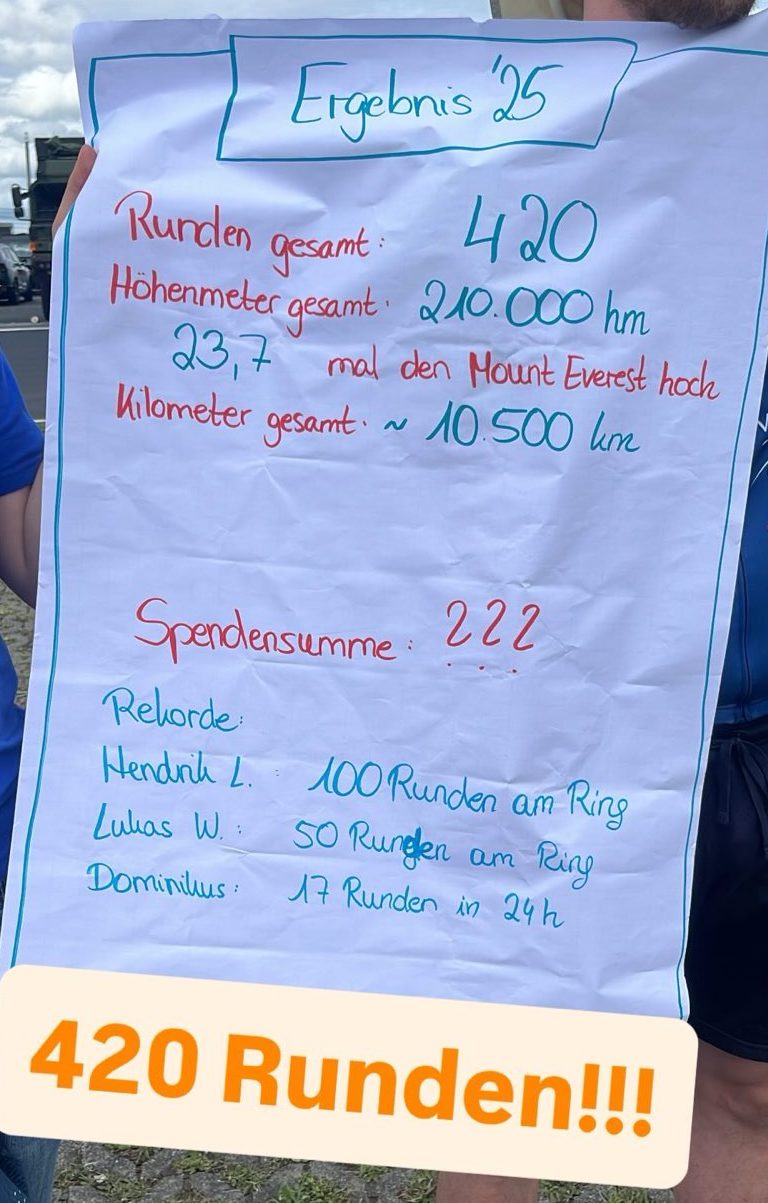 Ergebnis '25
Runden gesamt: 420
Höhenmeter gesamt: 210.000 hm
23,7 mal den Mount Everest hoch
Kilometer gesamt: ~ 10.500 km
Spendensumme: ???
Rekorde:
Hendrik L. : 100 Runden am Ring
Lukas W. : 50 Runden am Ring
Dominikus: 17 Runden in 24h
420 Runden!!!